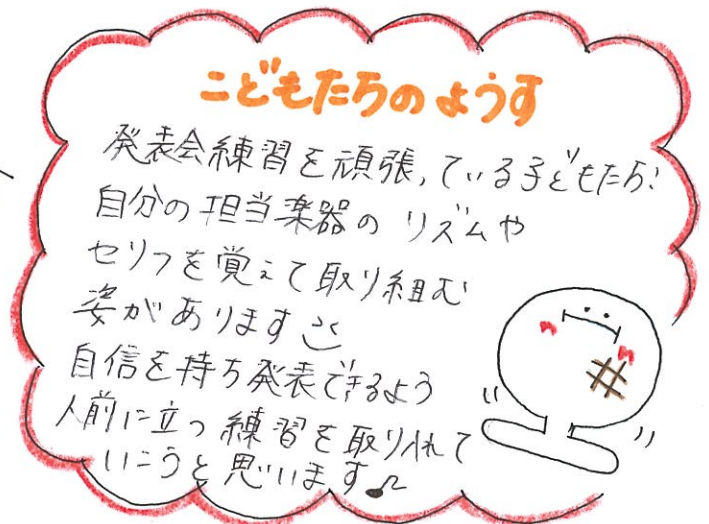 こどもたちのようす
発表会練習を頑張っている子どもたち!
自分の担当楽器のリズムや
セリフを覚えて取り組む
姿があります
自信を持ち発表できるよう
人前に立つ練習を取り入れて
いこうと思います♪